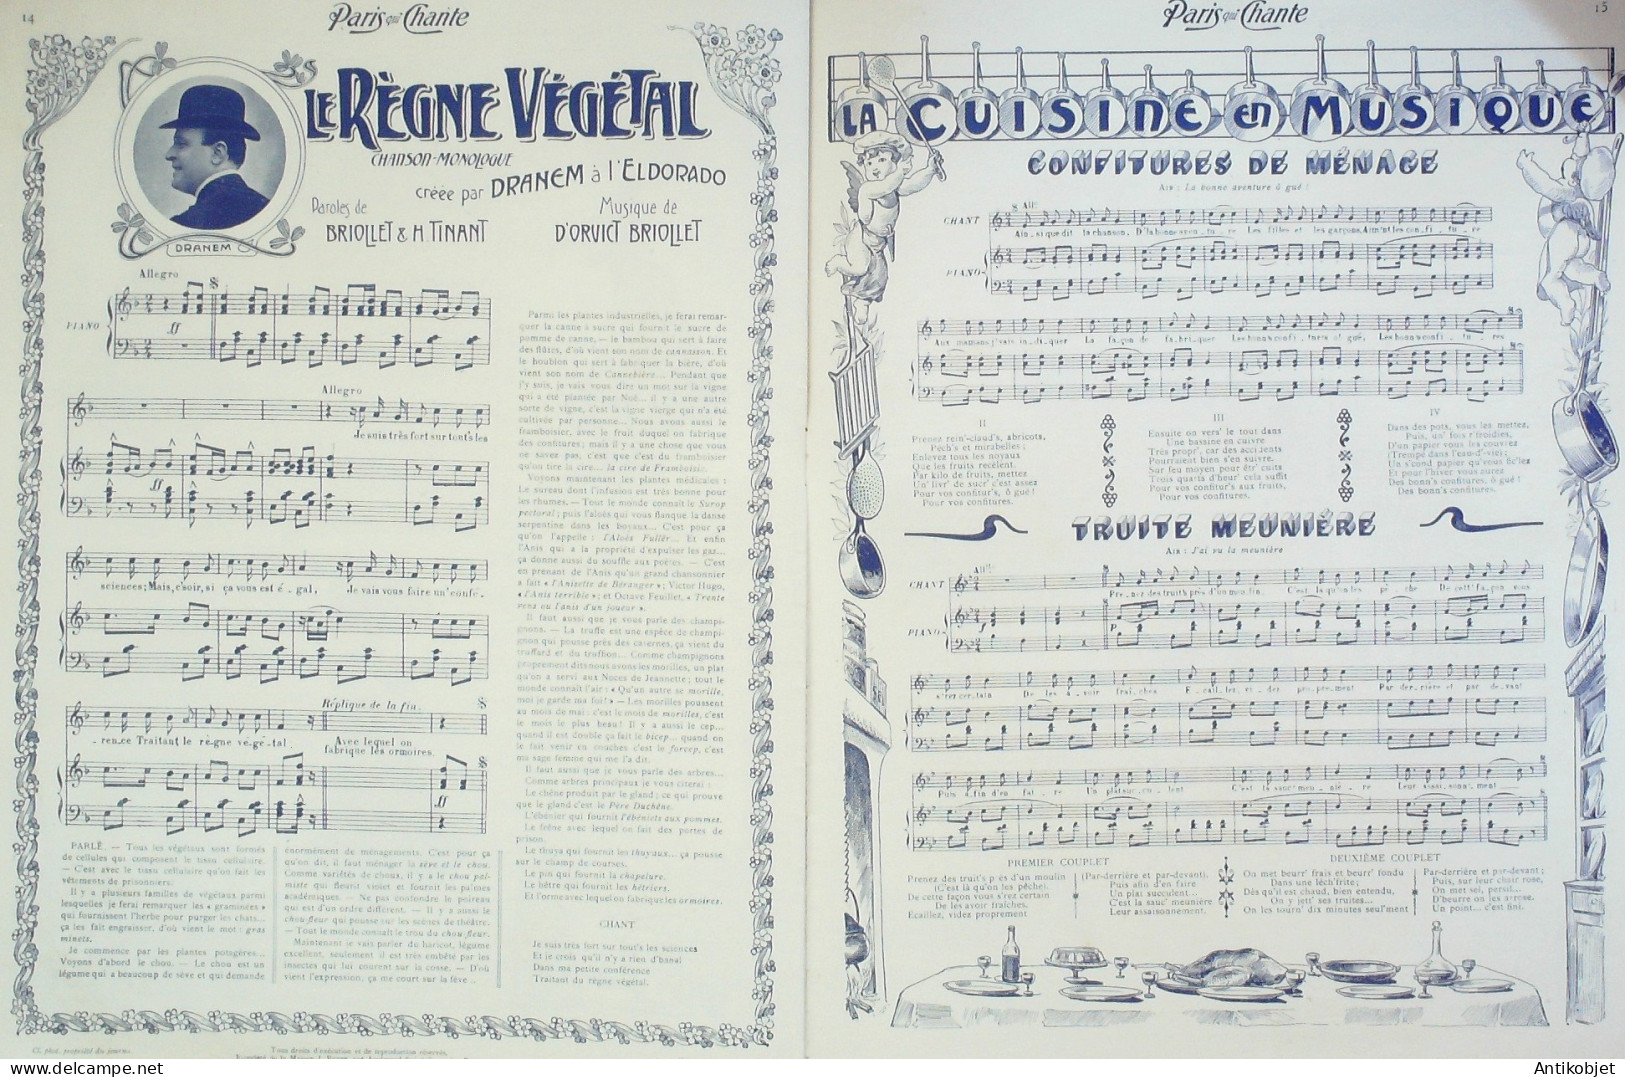 14
Paris qui Chante
LE RÈGNE VÉGÉTAL
CHANSON-MONOLOGUE
créée par DRANEM à l'ELDORADO
Paroles de
BRIOLLET & H. TINANT
Musique de
D'ORVICT BRIOLLET
DRANEM
Allegro
PIANO
ff
Allegro
Je suis très fort sur tout's les
ff
sciences; Mais, c'soir, si ça vous est é - gal, Je vais vous faire un' confé -
Réplique de la fin.
- ren-ce Traitant le rè-gne vé-gé-tal.
Avec lequel on
fabrique les ormoires.
ff
PARLÉ. — Tous les végétaux sont formés
de cellules qui composent le tissu cellulaire.
— C'est avec le tissu cellulaire qu'on fait les
vêtements de prisonniers.
Il y a plusieurs familles de végétaux parmi
lesquelles je ferai remarquer les « graminées »
qui fournissent l'herbe pour purger les chats...
ça les fait engraisser, d'où vient le mot : gras
minets.
Je commence par les plantes potagères...
Voyons d'abord le chou. — Le chou est un
légume qui a beaucoup de sève et qui demande
énormément de ménagements. C'est pour ça
qu'on dit, il faut ménager la sève et le chou.
Comme variétés de choux, il y a le chou pal-
miste qui fleurit violet et fournit les palmes
académiques. — Ne pas confondre le poireau
qui est d'un ordre différent. — Il y a aussi le
chou-fleur qui pousse sur les scènes de théâtre.
— Tout le monde connaît le trou du chou-fleur.
Maintenant je vais parler du haricot, légume
excellent, seulement il est très embêté par les
insectes qui lui courent sur la cosse. — D'où
vient l'expression, ça me court sur la fève...
Parmi les plantes industrielles, je ferai remar-
quer la canne à sucre qui fournit le sucre de
pomme de canne, — le bambou qui sert à faire
des flûtes, d'où vient son nom de cannasson. Et
le houblon qui sert à fabriquer la bière, d'où
vient son nom de Cannebière... Pendant que
j'y suis, je vais vous dire un mot sur la vigne
qui a été plantée par Noé... il y a une autre
sorte de vigne, c'est la vigne vierge qui n'a été
cultivée par personne... Nous avons aussi le
framboisier, avec le fruit duquel on fabrique
des confitures; mais il y a une chose que vous
ne savez pas, c'est que c'est du framboisier
qu'on tire la cire... la cire de Framboisie.
Voyons maintenant les plantes médicales :
Le sureau dont l'infusion est très bonne pour
les rhumes, — Tout le monde connaît le Surop
pectoral; puis l'aloès qui vous flanque la danse
serpentine dans les boyaux... C'est pour ça
qu'on l'appelle : l'Aloès Fullër... Et enfin
l'Anis qui a la propriété d'expulser les gaz...
ça donne aussi du souffle aux poètes. — C'est
en prenant de l'Anis qu'un grand chansonnier
a fait « l'Anisette de Béranger »; Victor Hugo,
« l'Anis terrible »; et Octave Feuillet, « Trente
rens ou l'anis d'un joueur ».
Il faut aussi que je vous parle des champi-
gnons. — La truffe est une espèce de champi-
gnon qui pousse près des casernes, ça vient du
truffard et du truffion... Comme champignons
proprement dits nous avons les morilles, un plat
qu'on a servi aux Noces de Jeannette; tout le
monde connaît l'air : « Qu'un autre se morille,
moi je garde ma foi! » — Les morilles poussent
au mois de mai : c'est le mois de morilles, c'est
le mois le plus beau! Il y a aussi le cep...
quand il est double ça fait le bicep... quand on
le fait venir en couches c'est le forcep, c'est
me sage femme qui me l'a dit.
Il faut aussi que je vous parle des arbres...
Comme arbres principaux je vous citerai :
Le chêne produit par le gland; ce qui prouve
que le gland c'est le Père Duchêne.
L'ébénier qui fournit l'ébéniots aux pommes.
Le frêne avec lequel on fait des portes de
prison.
Le thuya qui fournit les thuyaux... ça pousse
sur le champ de courses.
Le pin qui fournit la chapelure.
Le hêtre qui fournit les hêtriers.
Et l'orme avec lequel on fabrique les ormoires.
CHANT
Je suis très fort sur tout's les sciences
Et je crois qu'il n'y a rien d'banal
Dans ma petite conférence
Traitant du règne végétal.
Cl. phot. propriété du journal
Tous droits d'exécution et de reproduction réservés.
Paris qui Chante
15
LA CUISINE en MUSIQUE
CONFITURES DE MÉNAGE
AIR : La bonne aventure ô gué !
All°
CHANT
Ain-si que dit la chanson, D'la bonne aven-tu-re Les filles et les garçons, Aim'nt les con-fi-tu-re
PIANO
Aux mamans j'vais in-di-quer La fa-çon de fa-bri-quer Les bonn's confi-tures ô gué, Les bonn's confi-tu-res
II
Prenez rein'-claud's, abricots,
Pêch's et mirabelles ;
Enlevez tous les noyaux
Que les fruits recèlent.
Par kilo de fruits, mettez
Un' livr' de sucr' c'est assez
Pour vos confitur's, ô gué !
Pour vos confitures.
III
Ensuite on vers' le tout dans
Une bassine en cuivre
Très propr', car des accidents
Pourraient bien s'en suivre.
Sur feu moyen pour êtr' cuits
Trois quarts d'heur' cela suffit
Pour vos confitur's aux fruits,
Pour vos confitures.
IV
Dans des pots, vous les mettez,
Puis, un' fois r'froidies,
D'un papier vous les couvrez
(Trempé dans l'eau-d'-vie) ;
Un s'cond papier qu'vous fic'lez
Et pour l'hiver vous aurez
Des bonn's confitures, ô gué !
Des bonn's confitures.
TRUITE MEUNIÈRE
AIR : J'ai vu la meunière
All°
CHANT
Pre-nez des truit's près d'un mou-lin, C'est là qu'on les pê-che De cett' fa-çon vous
PIANO
p
s'rez cer-tain De les a-voir fraî-ches E-cail-lez, vi-dez pro-pre-ment Par der-rière et par de-vant
Puis a-fin d'en fai-re Un plat suc-cu-lent C'est la sauc' meu-niè-re Leur assai-sonn'-ment
PREMIER COUPLET
Prenez des truit's près d'un moulin
(C'est là qu'on les pêche).
De cette façon vous s'rez certain
De les avoir fraîches.
Ecaillez, vides proprement
(Par-derrière et par-devant).
Puis afin d'en faire
Un plat succulent...
C'est la sauc' meunière
Leur assaisonnement.
DEUXIÈME COUPLET
On met beurr' frais et beurr' fondu
Dans une lèch'frite ;
Dès qu'il est chaud, bien entendu,
On y jett' ses truites...
On les tourn' dix minutes seul'ment
Par-derrière et par-devant ;
Puis, sur leur chair rose,
On met sel, persil...
D'beurre on les arrose.
Un point... c'est fini.
Antikobjet